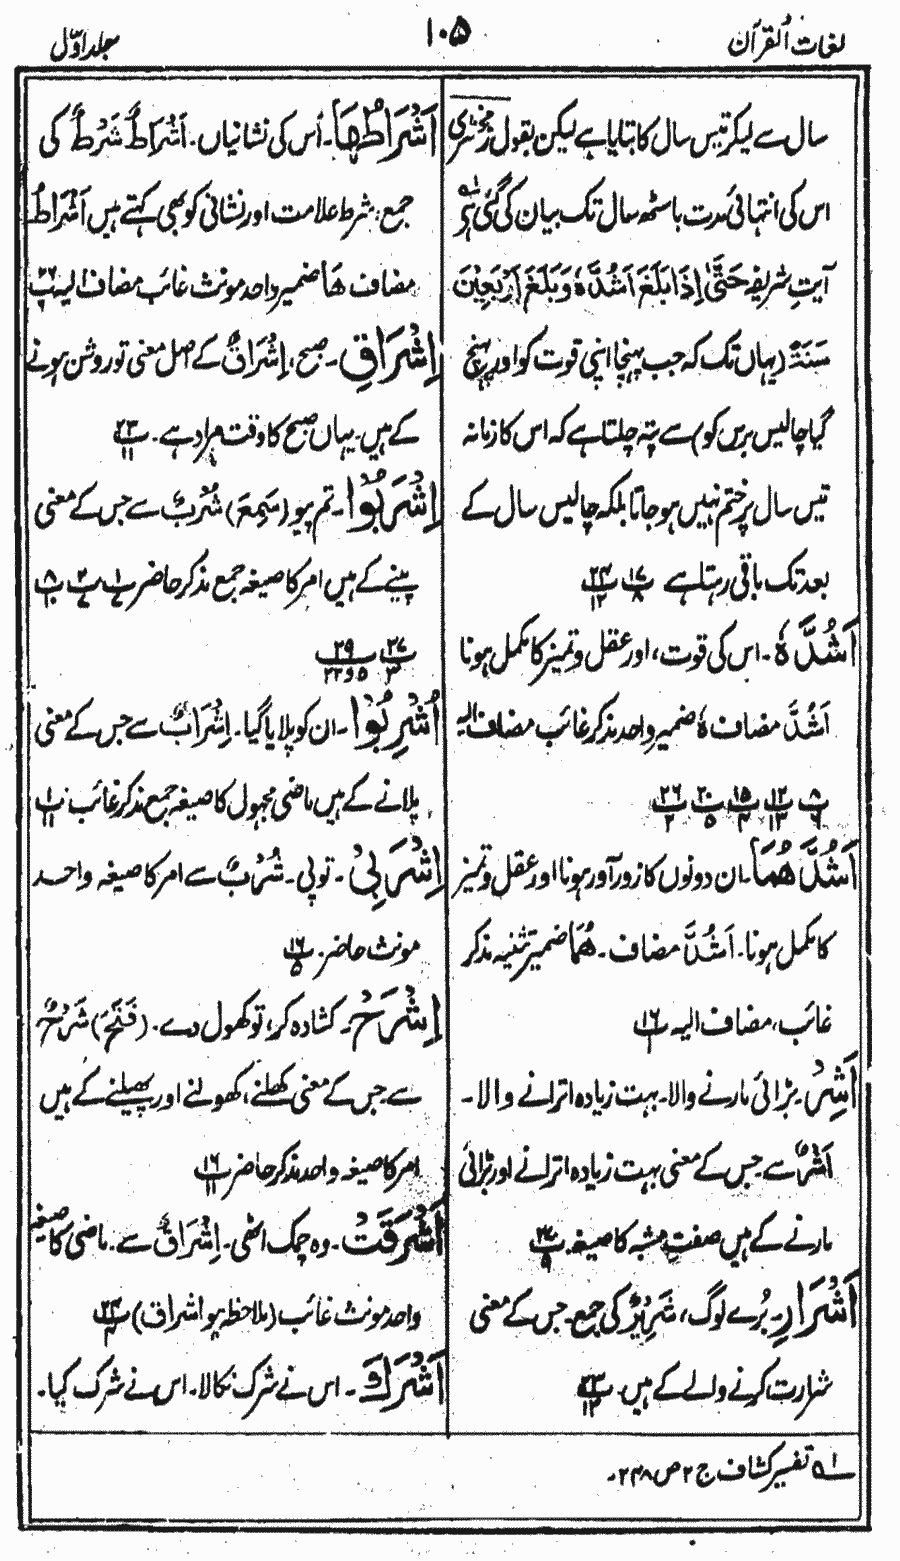 لغات القرآن
۱۰۵
جلد اوّل
سال سے لیکر تیس سال کا بتایا ہے لیکن بقول زمخشری
اس کی انتہائی مدت باسٹھ سال تک بیان کی گئی ہے
آیتِ شریفہ حَتّٰی اِذَا بَلَغَ اَشُدَّہٗ وَبَلَغَ اَرْبَعِیْنَ
سَنَۃً (یہاں تک کہ جب پہنچا اپنی قوت کو اور پہنچ
گیا چالیس برس کو) سے پتہ چلتا ہے کہ اس کا زمانہ
تیس سال پر ختم نہیں ہو جاتا بلکہ چالیس سال کے
بعد تک باقی رہتا ہے
اَشُدَّہٗ۔ اس کی قوت، اور عقل و تمیز کا مکمل ہونا
اَشُدَّ مضاف ہٗ ضمیر واحد مذکر غائب مضاف الیہ
اَشُدَّھُمَا۔ ان دونوں کا زور آور ہونا اور عقل و تمیز
کا مکمل ہونا۔ اَشُدَّ مضاف۔ ھُمَا ضمیر تثنیہ مذکر
غائب، مضاف الیہ
اَشِرُ۔ بڑائی مارنے والا۔ بہت زیادہ اترانے والا۔
اَشَرٌ سے جس کے معنی بہت زیادہ اترانے اور بڑائی
مارنے کے ہیں صفتِ مشبہ کا صیغہ
اَشْرَارِ۔ بُرے لوگ، شَرِیْرٌ کی جمع۔ جس کے معنی
شرارت کرنے والے کے ہیں۔
اَشْرَاطُھَا۔ اُس کی نشانیاں۔ اَشْرَاطٌ شَرَطٌ کی
جمع، شرط علامت اور نشانی کو بھی کہتے ہیں اَشْرَاطُ
مضاف ھَا ضمیر واحد مونث غائب مضاف الیہ
اِشْرَاقِ۔ صبح، اِشْرَاقٌ کے اصل معنی تو روشن ہونے
کے ہیں۔ یہاں صبح کا وقت مراد ہے۔
اِشْرَبُوْا۔ تم پیو (سَمِعَ) شُرْبٌ سے جس کے معنی
پینے کے ہیں امر کا صیغہ جمع مذکر حاضر
اُشْرِبُوْا۔ ان کو پلایا گیا۔ اِشْرَابٌ سے جس کے معنی
پلانے کے ہیں ماضی مجہول کا صیغہ جمع مذکر غائب
اِشْرَبِیْ۔ تو پی۔ شُرْبٌ سے امر کا صیغہ واحد
مونث حاضر۔
اِشْرَحْ۔ کشادہ کر، تو کھول دے۔ (فَتَحَ) شَرْحٌ
سے جس کے معنی کھلنے، کھولنے اور پھیلنے کے ہیں
امر کا صیغہ واحد مذکر حاضر
اَشْرَقَتْ۔ وہ چمک اٹھی۔ اِشْرَاقٌ سے۔ ماضی کا صیغہ
واحد مونث غائب (ملاحظہ ہو اشراق)
اَشْرَكَ۔ اس نے شرک نکالا۔ اس نے شرک کیا۔
۱؎ تفسیر کشاف ج ۲ ص ۲۴۸۔